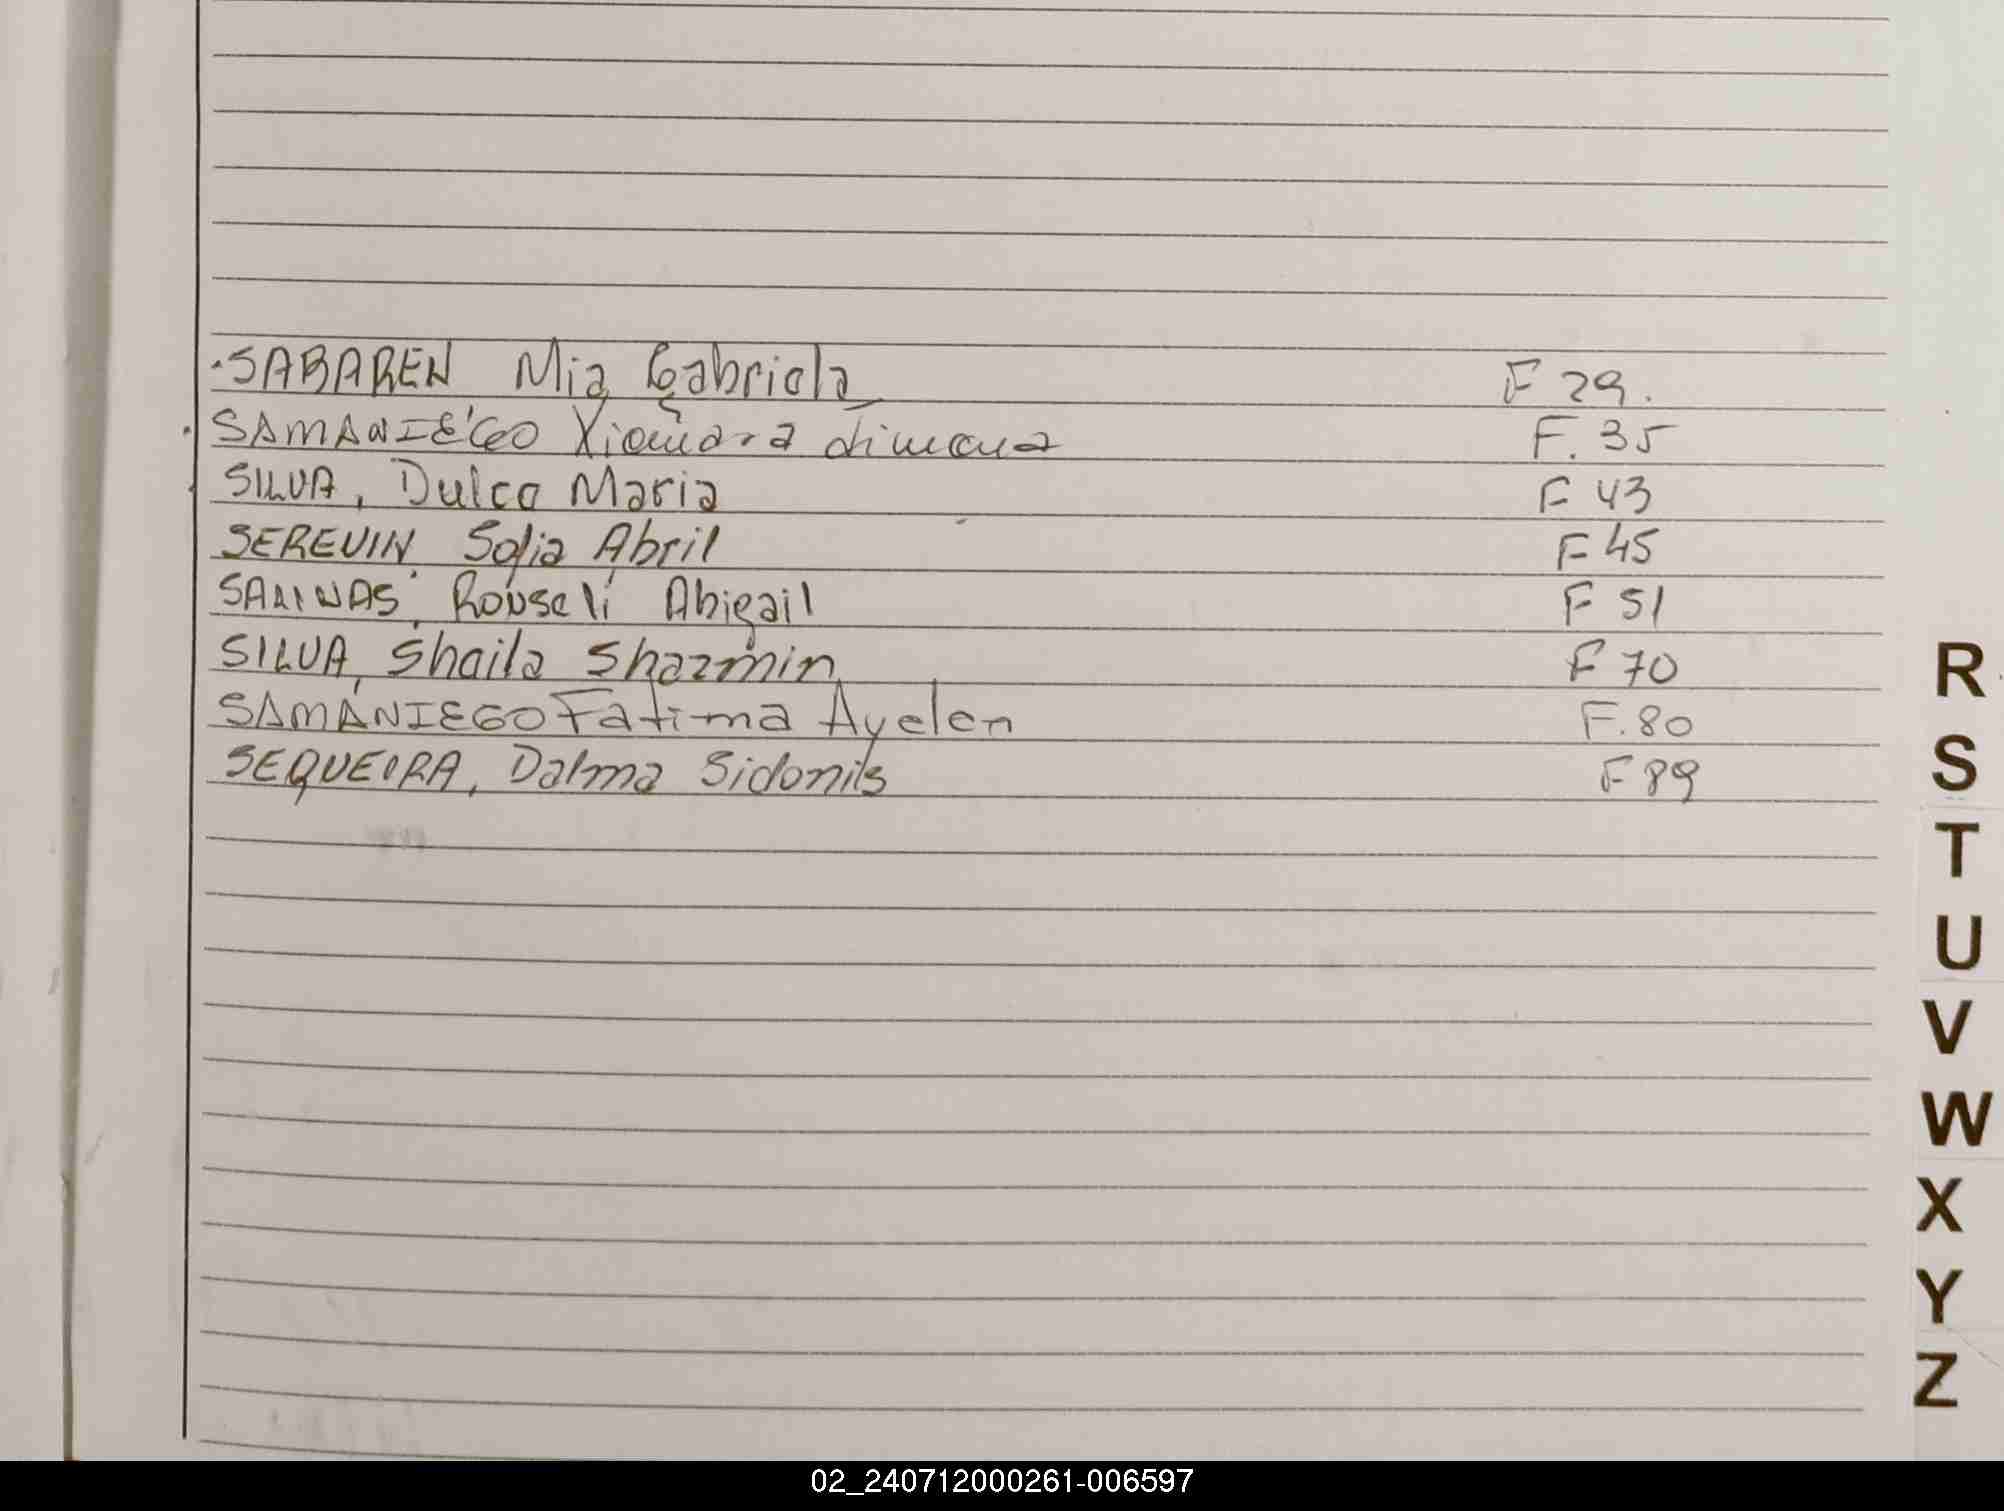 SABAREN Mia Gabriela F 29.
SAMANIEGO Xiomara Jimena F. 35
SILVA, Dulce Maria F 43
SEREVIN, Sofia Abril F 45
SALINAS, Rouseli Abigail F 51
SILVA, Shaila Shazmin F 70
SAMANIEGO Fatima Ayelen F. 80
SEQUEIRA, Dalma F 89
R
S
T
U
V
W
X
Y
Z
02_240712000261-006597